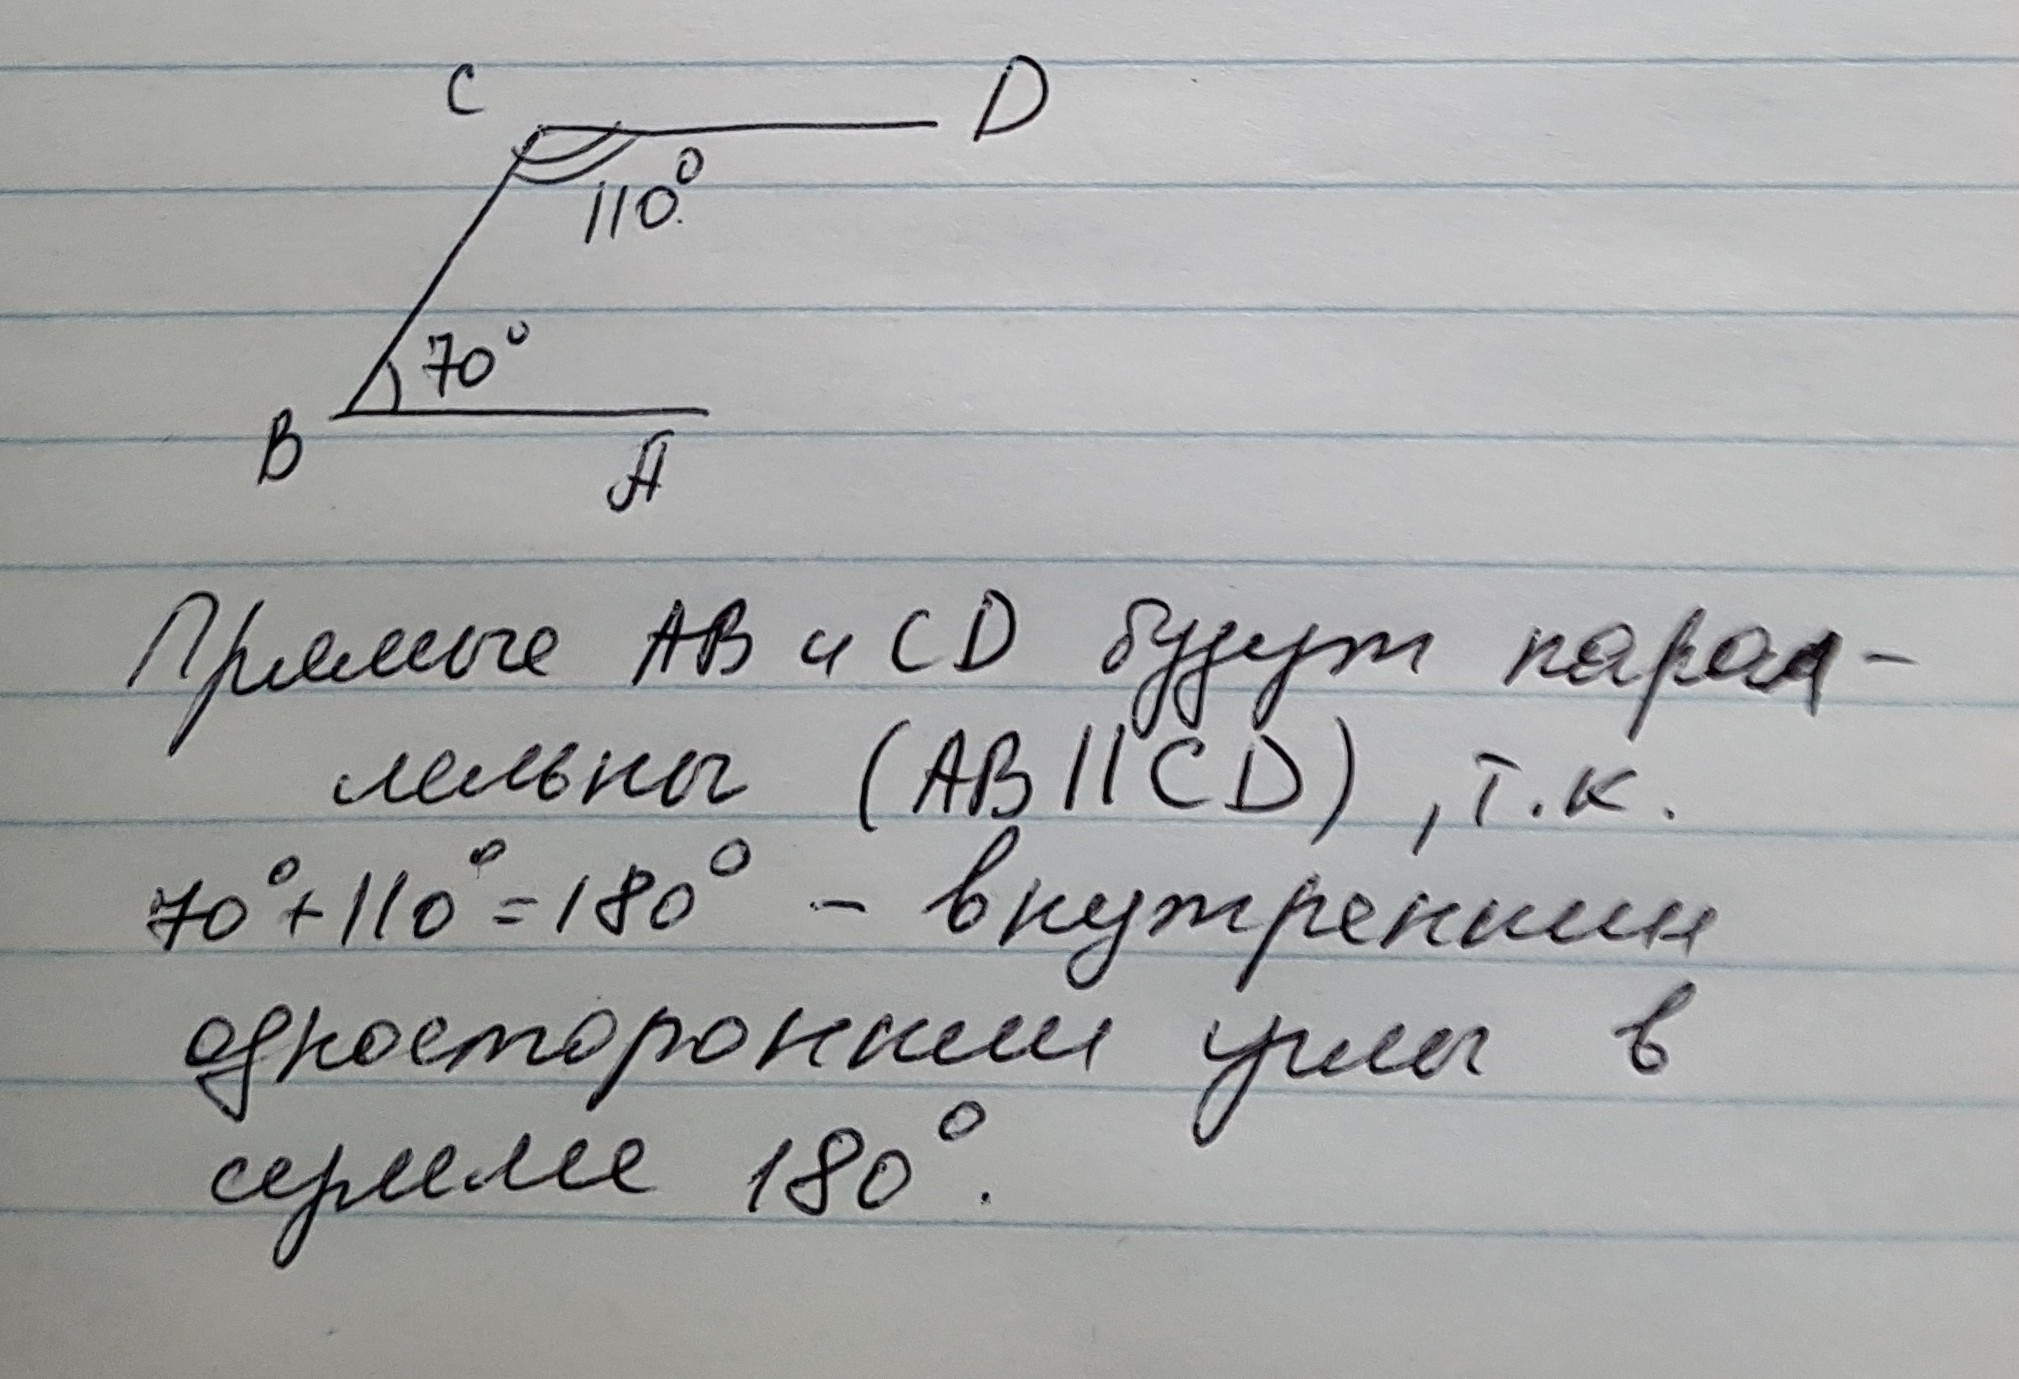 C D
110°
70°
B A
Прямые AB и CD будут парал-
лельны (AB||CD), т.к.
70°+110°=180° - внутренние
односторонние углы в
сумме 180°.